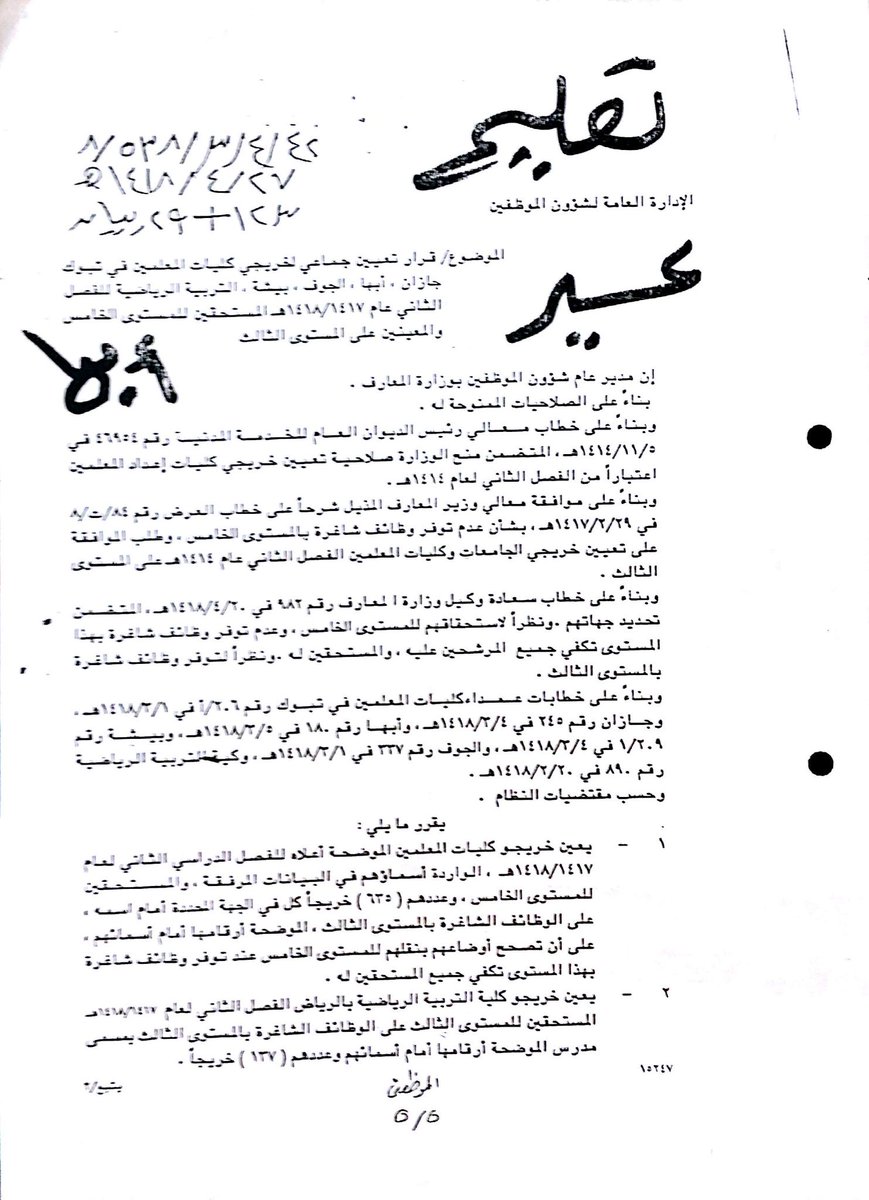 تعليم
٨/٥٣٨/٣/٤/٤٢
١٤١٨/٤/٢٧هـ
١٢٣+٢٩ بيان
الإدارة العامة لشؤون الموظفين
عسير
الموضوع/ قرار تعيين جماعي لخريجي كليات المعلمين في تبوك
جازان ، أبها ، الجوف ، بيشة ، التربية الرياضية للفصل
الثاني عام ١٤١٨/١٤١٧هـ المستحقين للمستوى الخامس
والمعينين على المستوى الثالث
أبها
إن مدير عام شؤون الموظفين بوزارة المعارف .
بناءً على الصلاحيات الممنوحة له .
وبناءً على خطاب معالي رئيس الديوان العام للخدمة المدنية رقم ٤٦٩٥٤ في
١٤١٤/١١/٥هـ، المتضمن منح الوزارة صلاحية تعيين خريجي كليات إعداد المعلمين
اعتباراً من الفصل الثاني لعام ١٤١٤هـ .
وبناءً على موافقة معالي وزير المعارف المذيل شرحاً على خطاب العرض رقم ٨٤/ت/٨
في ١٤١٧/٢/٢٩هـ، بشأن عدم توفر وظائف شاغرة بالمستوى الخامس ، وطلب الموافقة
على تعيين خريجي الجامعات وكليات المعلمين الفصل الثاني عام ١٤١٤هـ على المستوى
الثالث .
وبناءً على خطاب سعادة وكيل وزارة المعارف رقم ٩٨٢ في ١٤١٨/٤/٢٠هـ، المتضمن
تحديد جهاتهم .ونظراً لاستحقاقهم للمستوى الخامس ، وعدم توفر وظائف شاغرة بهذا
المستوى تكفي جميع المرشحين عليه ، والمستحقين له .ونظراً لتوفر وظائف شاغرة
بالمستوى الثالث .
وبناءً على خطابات عمداءكليات المعلمين في تبوك رقم ٢٠٦/أ في ١٤١٨/٣/٦هـ ،
وجازان رقم ٢٤٥ في ١٤١٨/٣/٤هـ، وأبها رقم ١٨٠ في ١٤١٨/٣/٥هـ، وبيشة رقم
١/٢٠٩ في ١٤١٨/٣/٤هـ، والجوف رقم ٣٣٧ في ١٤١٨/٣/٦هـ ، وكلية التربية الرياضية
رقم ٨٩٠ في ١٤١٨/٢/٢٠هـ .
وحسب مقتضيات النظام .
يقرر ما يلي :
١ – يعين خريجو كليات المعلمين الموضحة أعلاه للفصل الدراسي الثاني لعام
١٤١٨/١٤١٧هـ ، الواردة أسماؤهم في البيانات المرفقة ، والمستحقين
للمستوى الخامس ، وعددهم ( ٦٣٥ ) خريجاً كل في الجهة المحددة أمام اسمه ،
على الوظائف الشاغرة بالمستوى الثالث ، الموضحة أرقامها أمام أسمائهم ،
على أن تصحح أوضاعهم بنقلهم للمستوى الخامس عند توفر وظائف شاغرة
بهذا المستوى تكفي جميع المستحقين له .
٢ – يعين خريجو كلية التربية الرياضية بالرياض الفصل الثاني لعام ١٤١٨/١٤١٧هـ
المستحقين للمستوى الثالث على الوظائف الشاغرة بالمستوى الثالث بمسمى
مدرس الموضحة أرقامها أمام أسمائهم وعددهم ( ١٣٧ ) خريجاً .
١٥٢٤٧
الموظفين
يتبع/٢
٥/٥